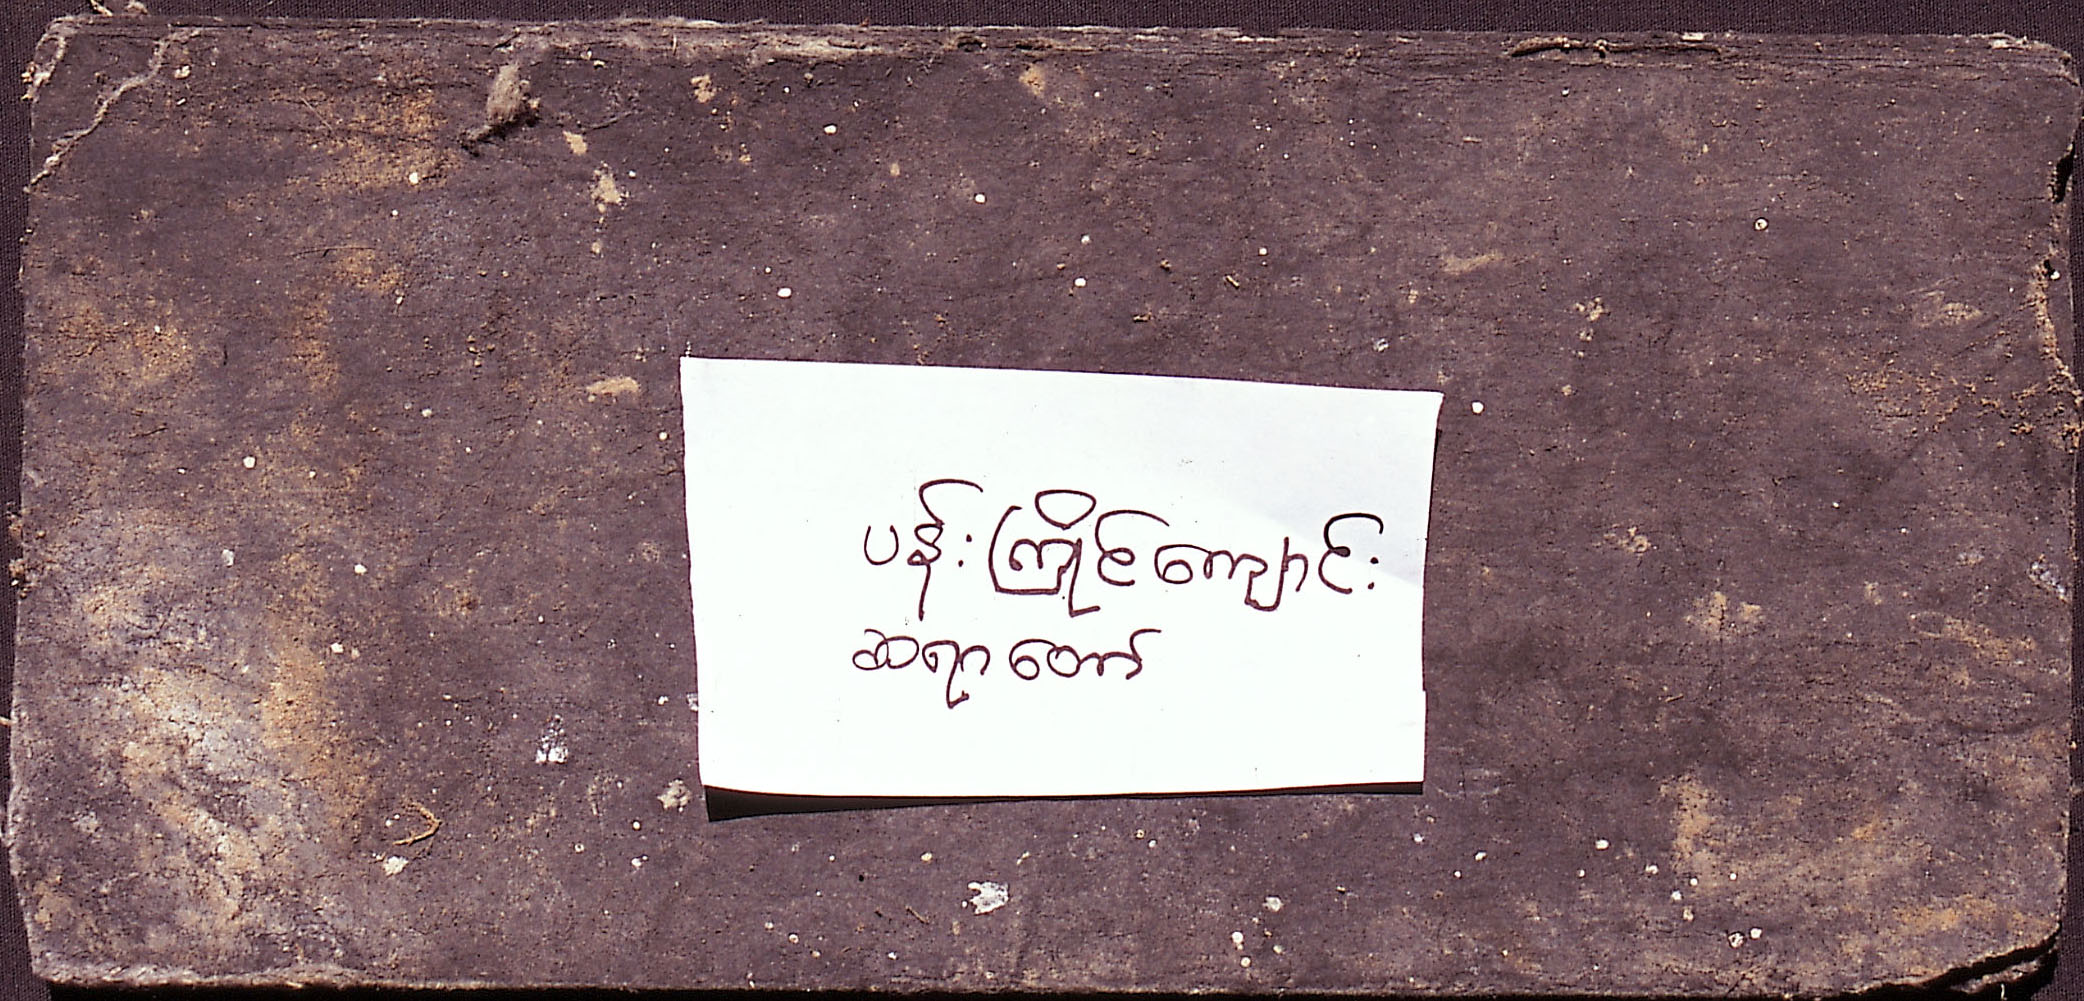 ပန်းကြိုင်ကျောင်း
ဆရာတော်